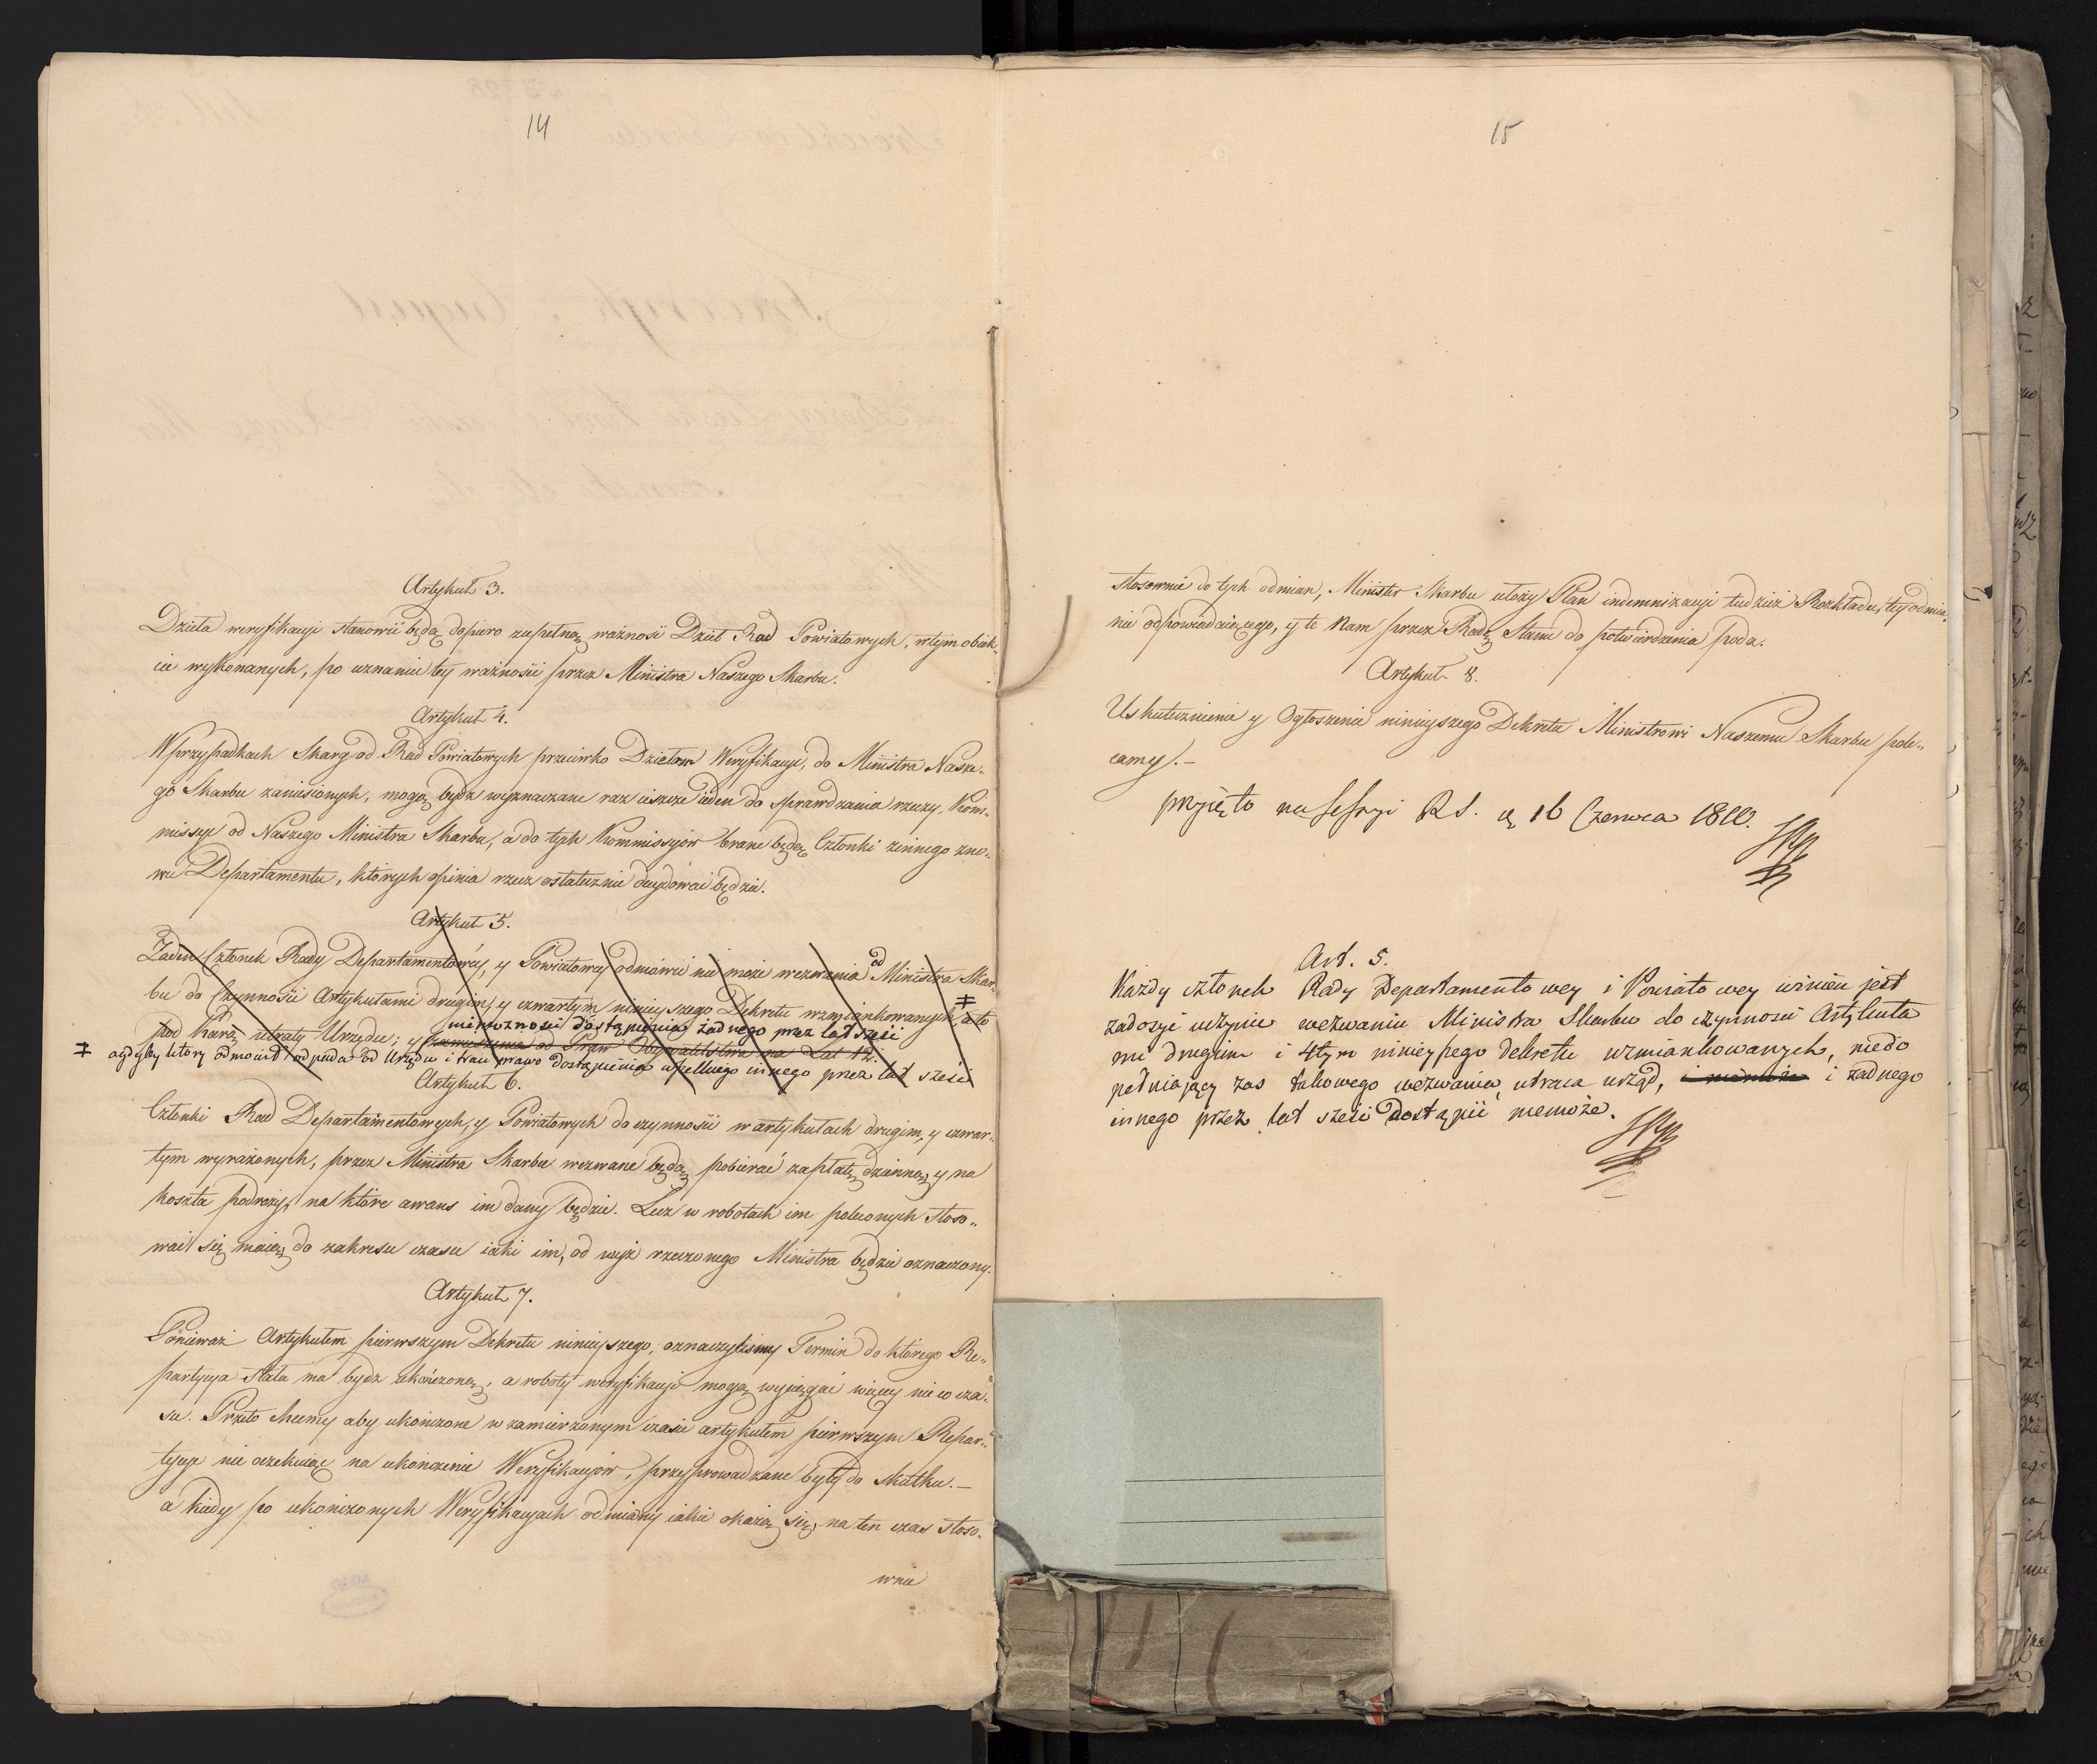 14
Artykuł 3.
Dzieła weryfikacyi stanowić będą dopiero zupełną ważność Dzieł Rad Powiatowych, w tym obiek-
cie wykonanych, po uznaniu tey ważności przez Ministra Naszego Skarbu.
Artykuł 4.
W przypadkach Skarg od Rad Powiatowych przeciwko Dziełom Weryfikacyi, do Ministra Nasze-
go Skarbu zaniesionych, mogą bydź wyznaczane raz ieszcze ieden do sprawdzania rzeczy, Kom-
missye od Naszego Ministra Skarbu, a do tych Kommissyiów brane będą Członki z innego zno-
wu Departamentu, których opinia rzecz ostatecznie decydować będzie.
Artykuł 5.
Żaden Członek Rady Departamentowéy, y Powiatowey odmówić nie może wezwania od Ministra Skar-
bu do Czynności Artykułami drugim, y czwartym ninieyszego Dekretu wzmiankowanych, a to
niemożności dostąpienia żadnego przez lat sześć
pod karą utraty Urzędu; y zawieszenia od Praw Obywatelstwa na Lat 12.
‡ a gdyby który odmówił odpada od Urzędu i traci prawo dostąpienia wszelkiego innego przez lat sześć
Artykuł 6.
Członki Rad Departamentowych, y Powiatowych do czynności w artykułach drugim, y czwar-
tym wyrażonych, przez Ministra Skarbu wezwane będą pobierać zapłatę dzienną, y na
koszta podroży, na które awans im dany będzie. Lecz w robotach im poleconych stoso-
wać się maią do zakresu czasu iaki im, od wyż rzeczonego Ministra będzie oznaczony.
Artykuł 7.
Ponieważ Artykułem pierwszym Dekretu ninieyszego, oznaczyliśmy Termin do którego Re-
partycya stała ma bydź ukończoną, a roboty weryfikacyi mogą wyciągać więcey nieco cza-
su. Przeto chcemy aby ukończone w zamierzonym czasie artykułem pierwszym Repar-
tycye nie oczekuiąc na ukończenie Weryfikacyiów, przyprowadzane były do skutku. —
a kiedy po ukończonych Weryfikacyach odmiany iakie okażą się, na ten czas stoso-
wnie
15
stosownie do tych odmian, Minister Skarbu ułoży Plan indemnizacyi tudzież Rozkładu, tey odmia-
nie odpowiadaiącego, y te Nam przez Radę Stanu do potwierdzenia poda.
Artykuł 8.
Uskutecznienie y Ogłoszenie ninieyszego Dekretu Ministrowi Naszemu Skarbu pole-
camy. —
przyięto na Sessyi R S. d. 16 Czerwca 1810.
Art. 5.
Każdy członek Rady Departamentowey i Powiatowey winien jest
zadosyć uczynić wezwaniu Ministra Skarbu do czynności Artykuła
mi drugim i 4tym ninieyszego dekretu wzmiankowanych, niedo
pełniający zaś takowego wezwania, utraca urząd, i żadnego
innego przez lat sześć dostąpić niemoże.